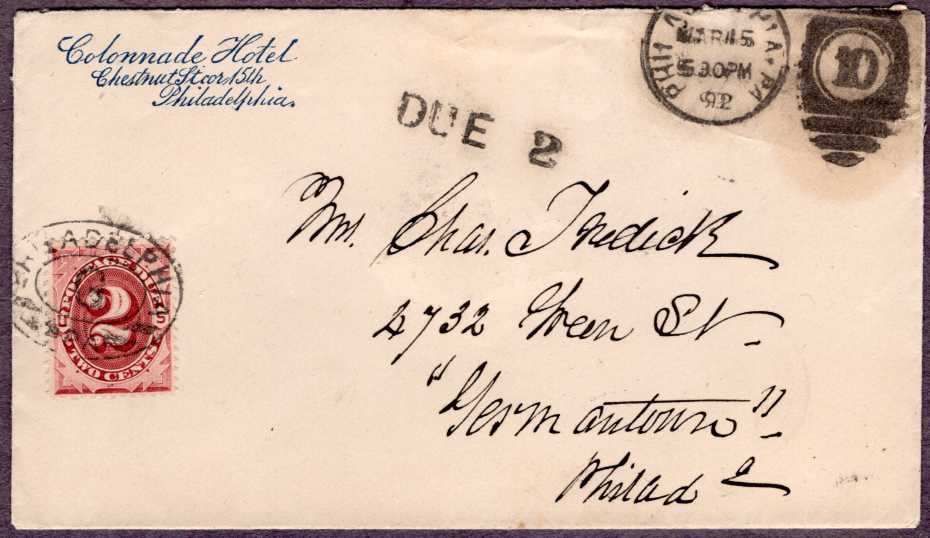 Colonnade Hotel
Chestnut St cor 15th
Philadelphia.
PHILADELPHIA. PA
MAR 15
5 30 PM
92
10
DUE 2
Chas. Fredick
4732 Green St.
"Germantown".
Philada
PHILADELPHI
POSTAGE DUE
2
TWO CENTS